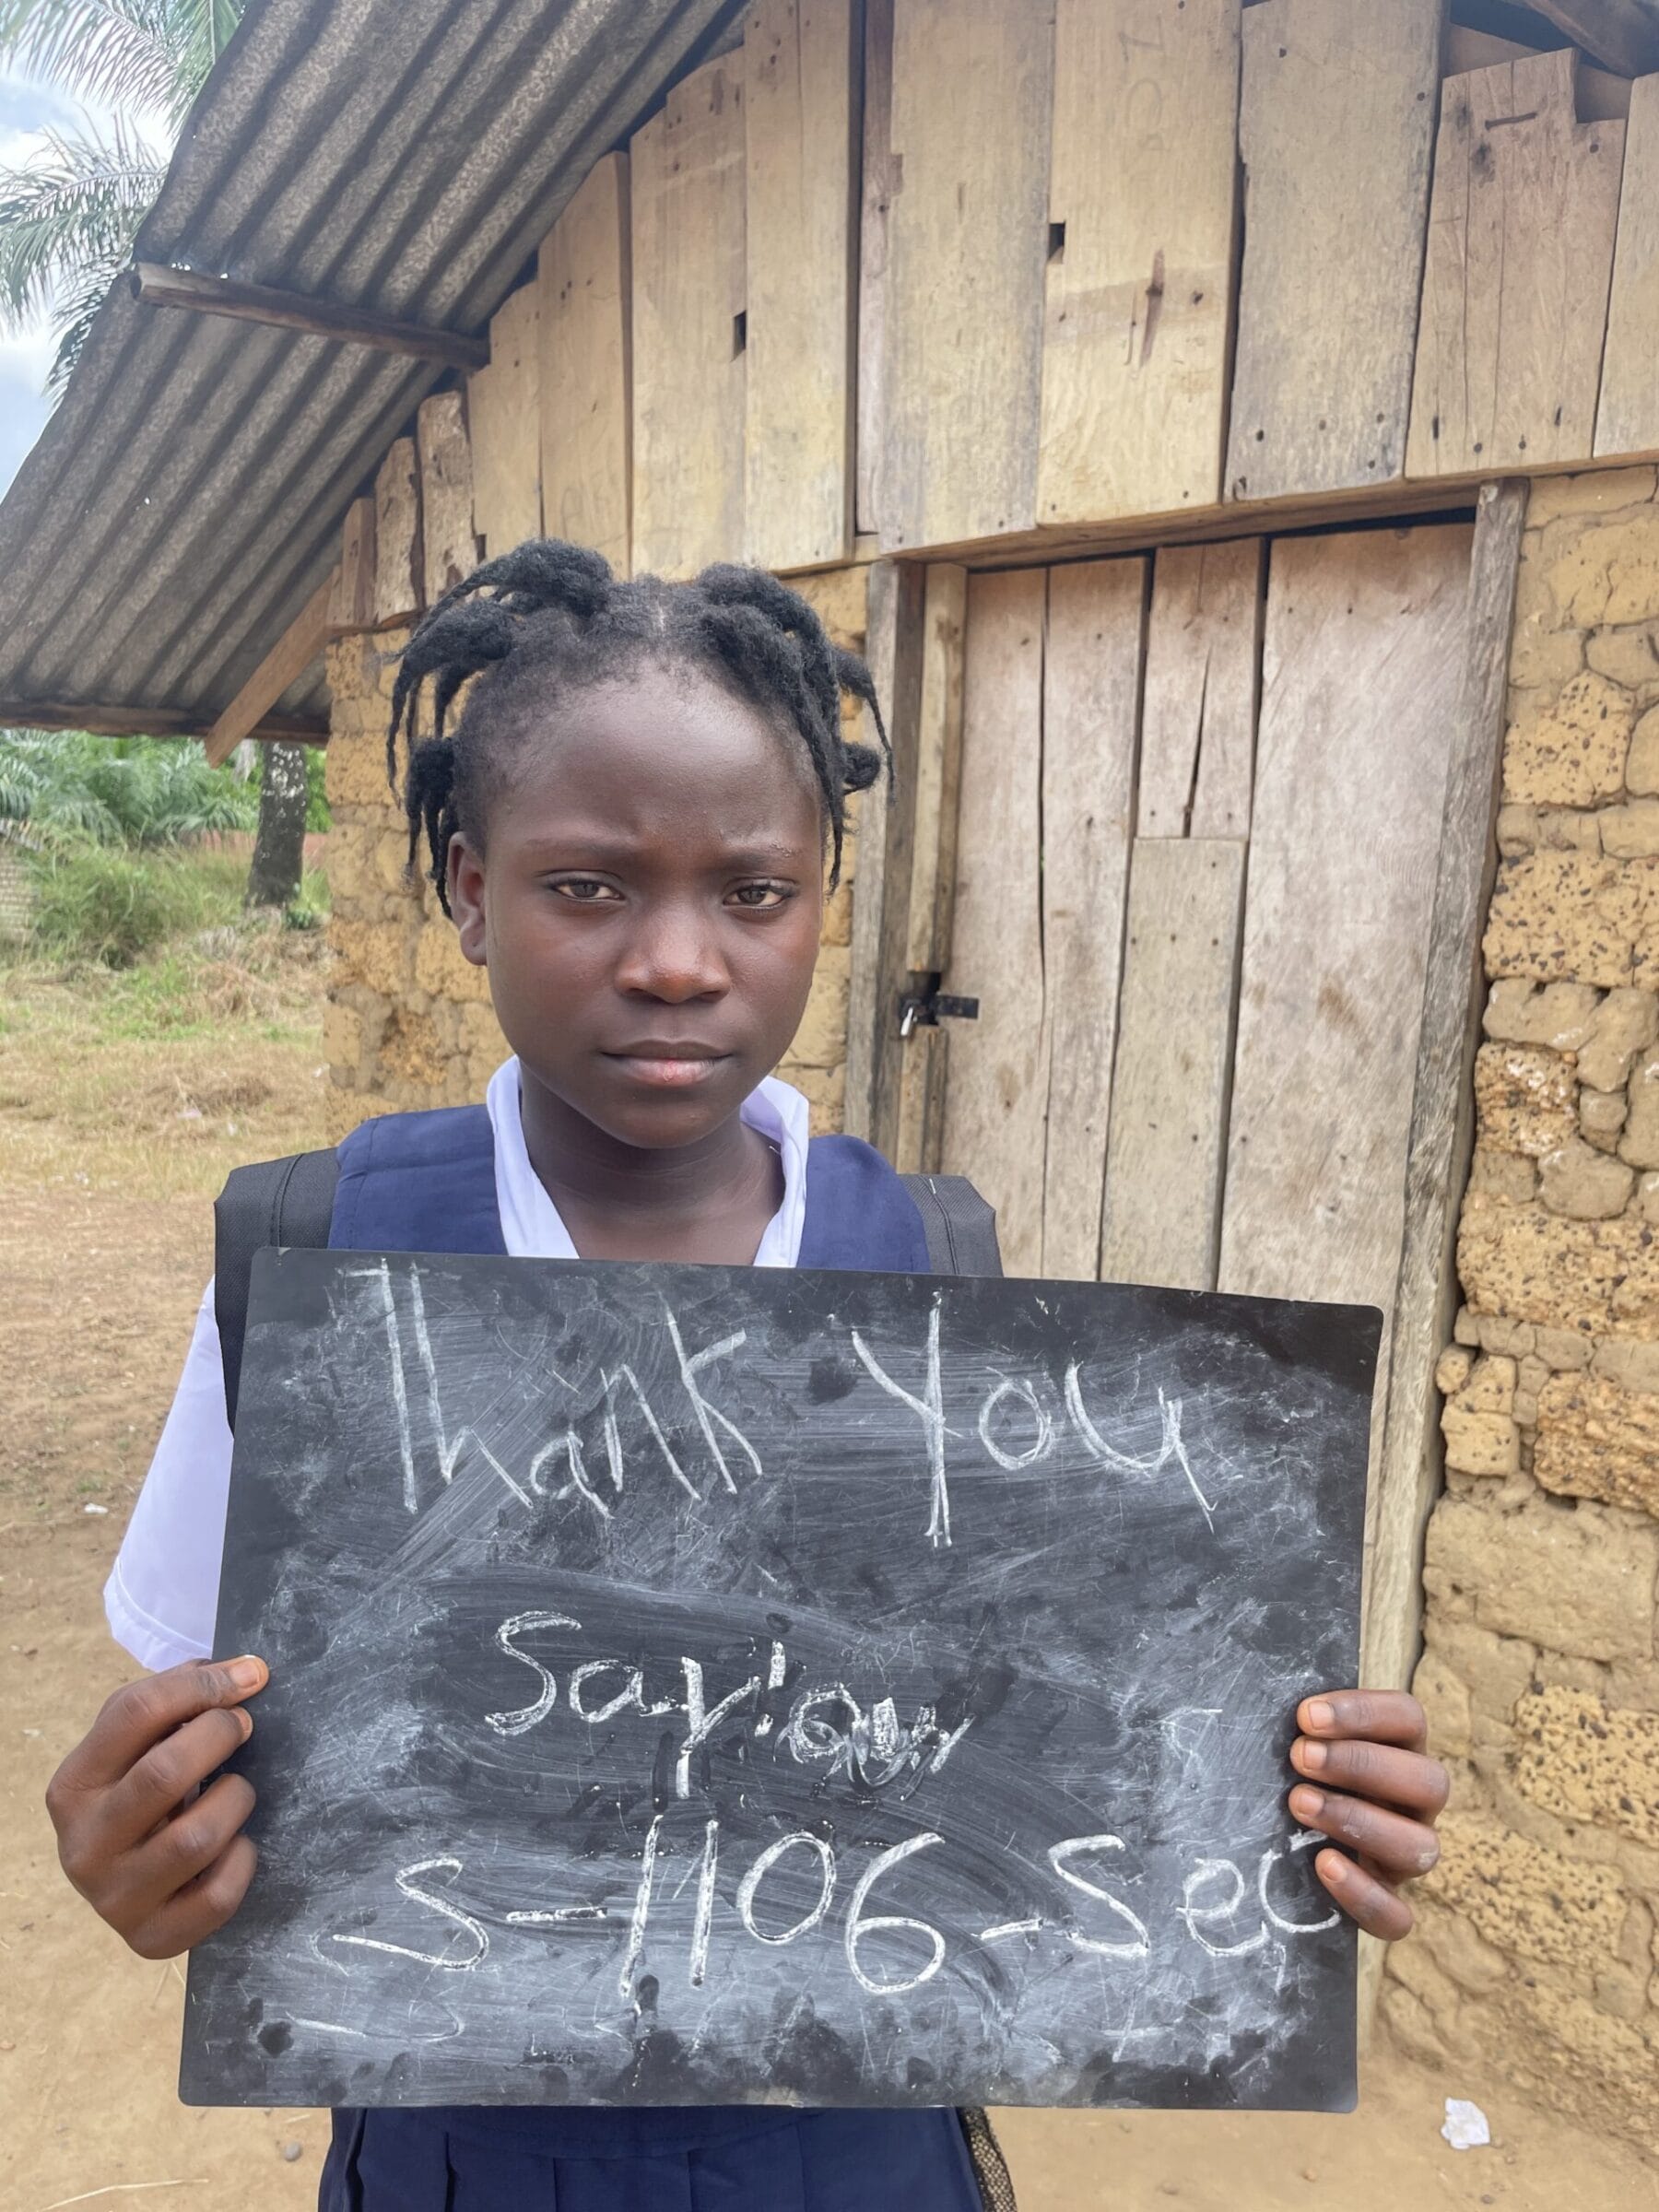 Thank You
Saviour
S-1106-Sec